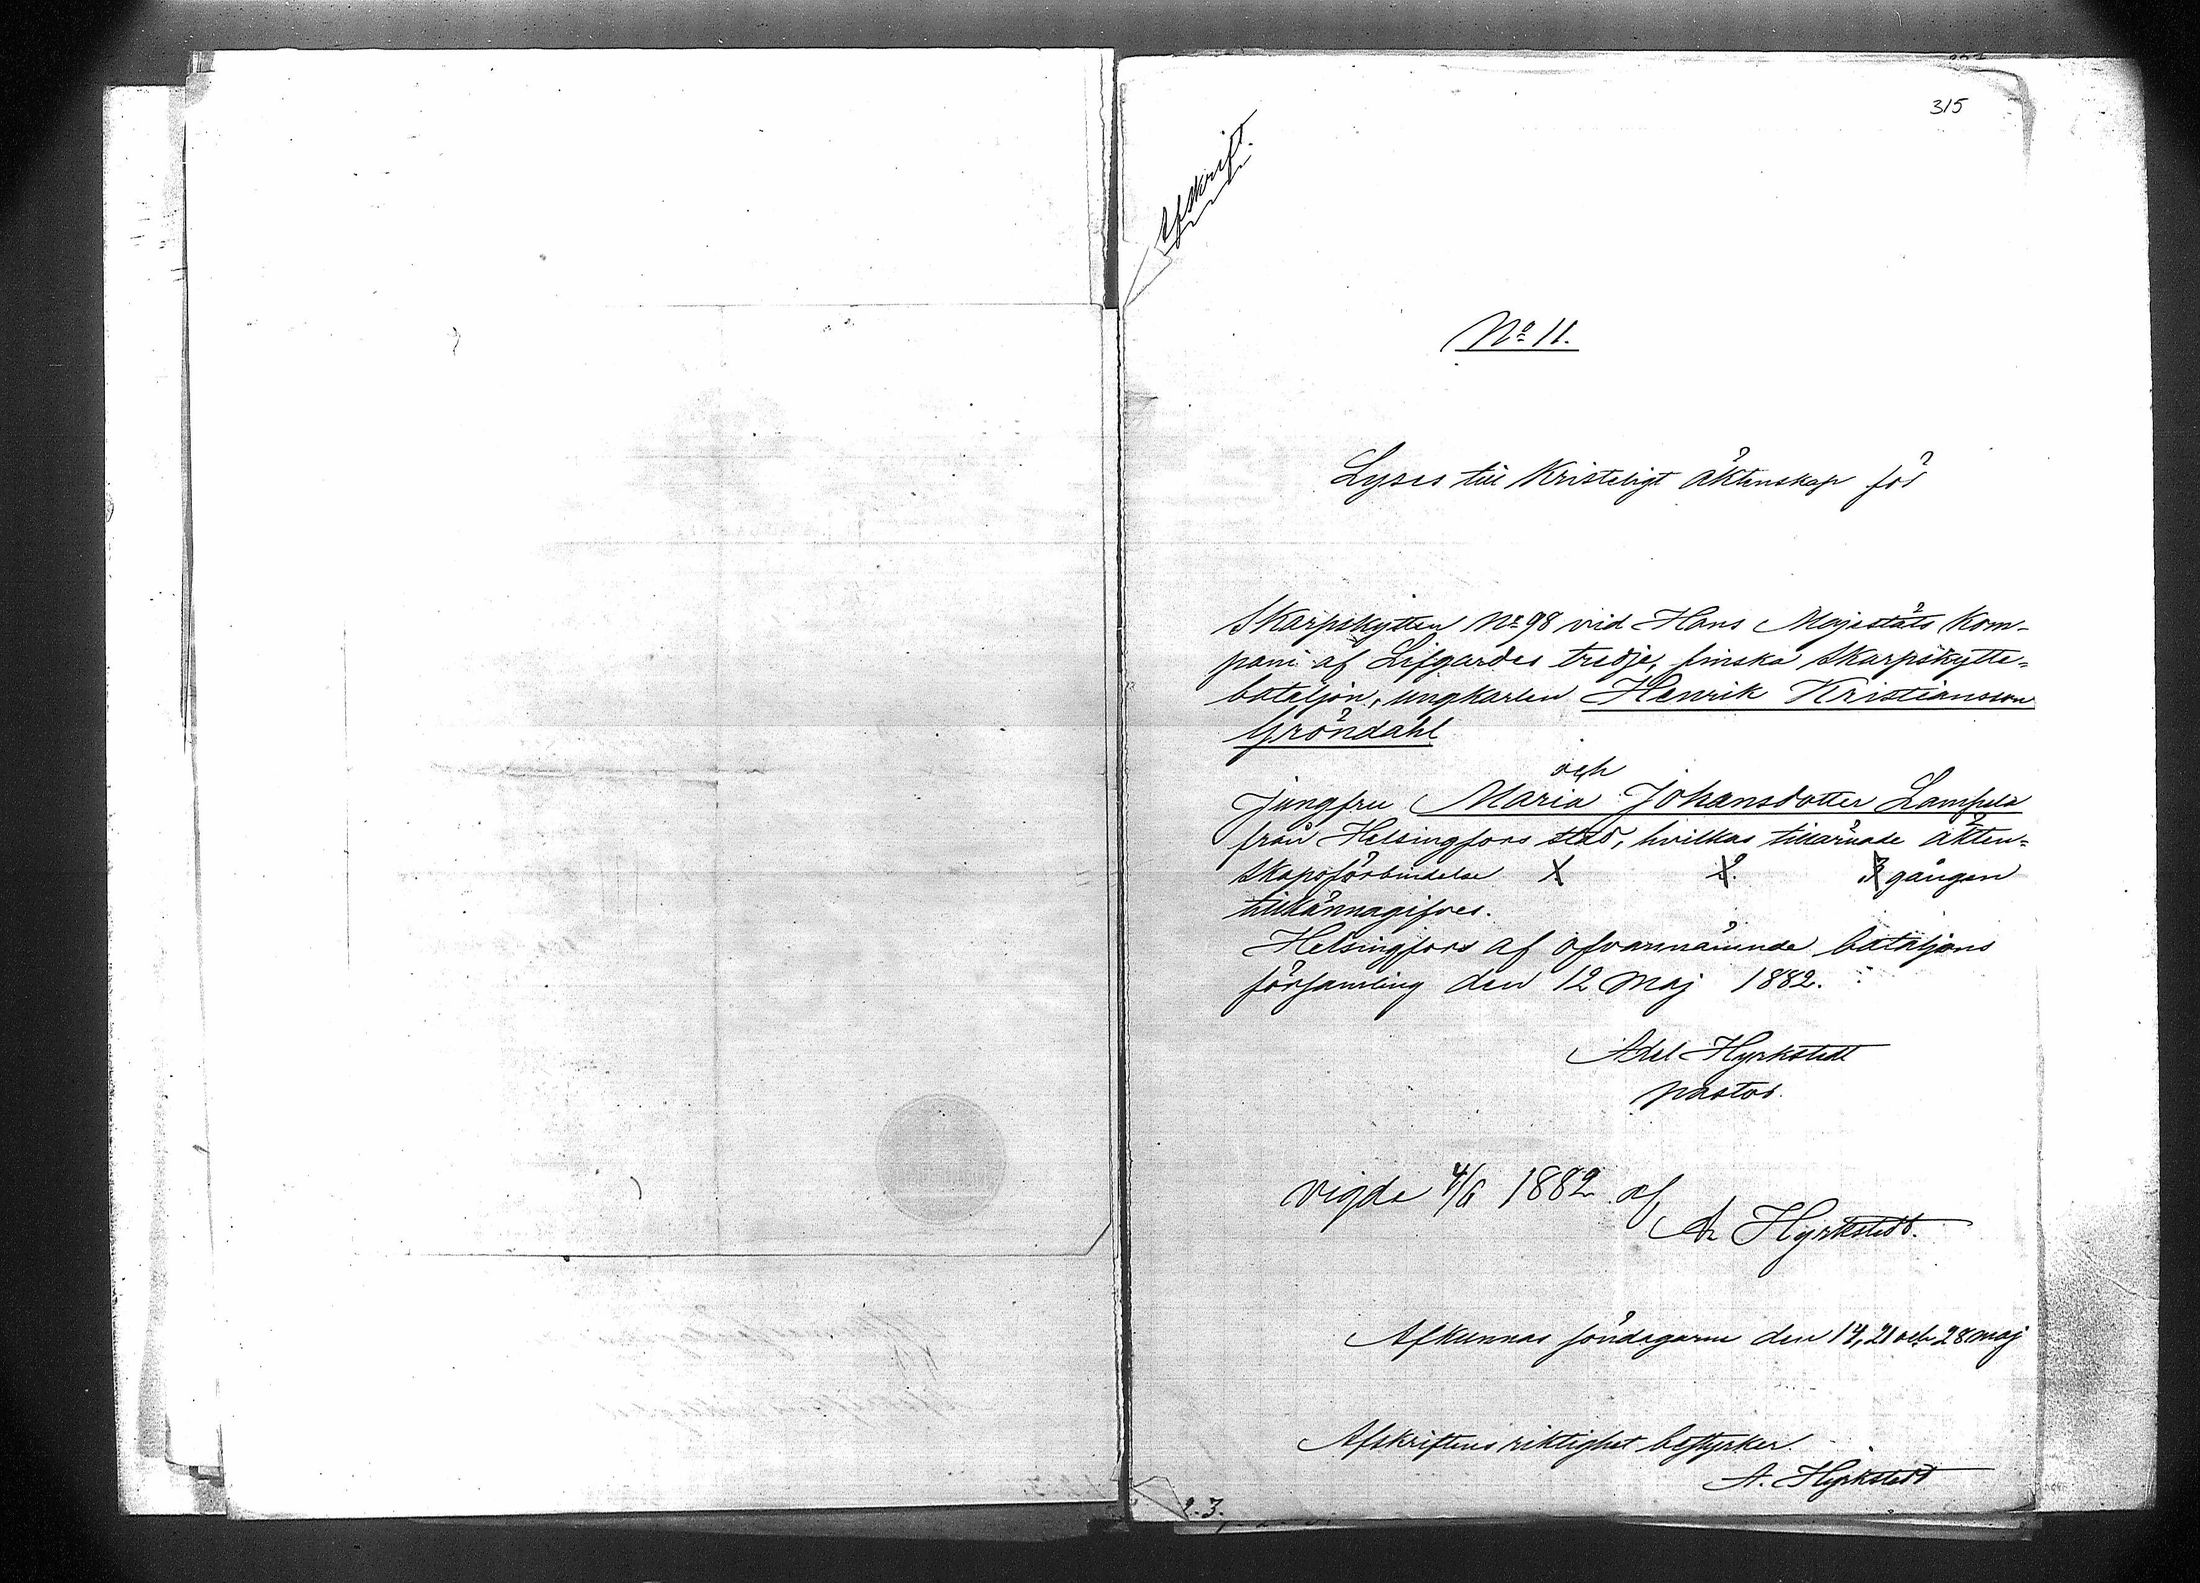 315
Afskrift.
No 11.
Lyses till Kristeligt äktenskap för
Skarpskytten No 98 vid Hans Majestäts Kom-
pani af Lifgardes tredje, finska Skarpskytte-
bataljon, ungkarlen Henrik Kristiansson
Gröndahl
och
jungfru Maria Johansdotter
från Helsingfors stad, hvilkas tillärnade äkten-
skapsförbindelse 1 2. 3 gången
tillkännagifves.
Helsingfors af ofvannämnde bataljons
församling den 12 Maj 1882.
Axel Hyrkstedt
pastor.
vigde 4/6 1882 af
Ax Hyrkstedt.
Afkunnas söndagarne den 14, 21 och 28 maj
Afskriftens riktighet bestyrker
A. Hyrkstedt
2.3.